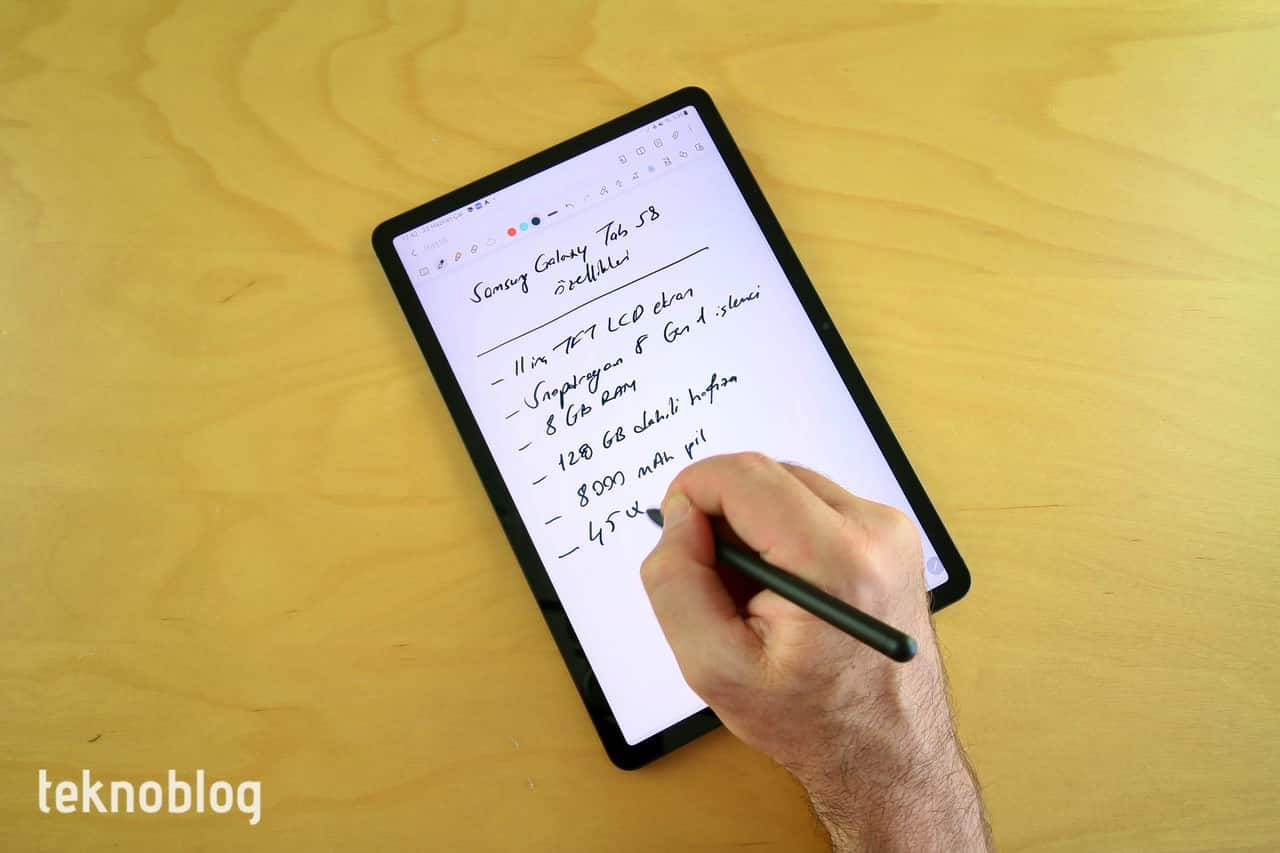 Samsung Galaxy Tab S8
özellikleri
- 11 inç TFT LCD ekran
- Snapdragon 8 Gen 1 işlemci
- 8 GB RAM
- 128 GB dahili hafıza
- 8000 mAh pil
- 45 W
teknoblog